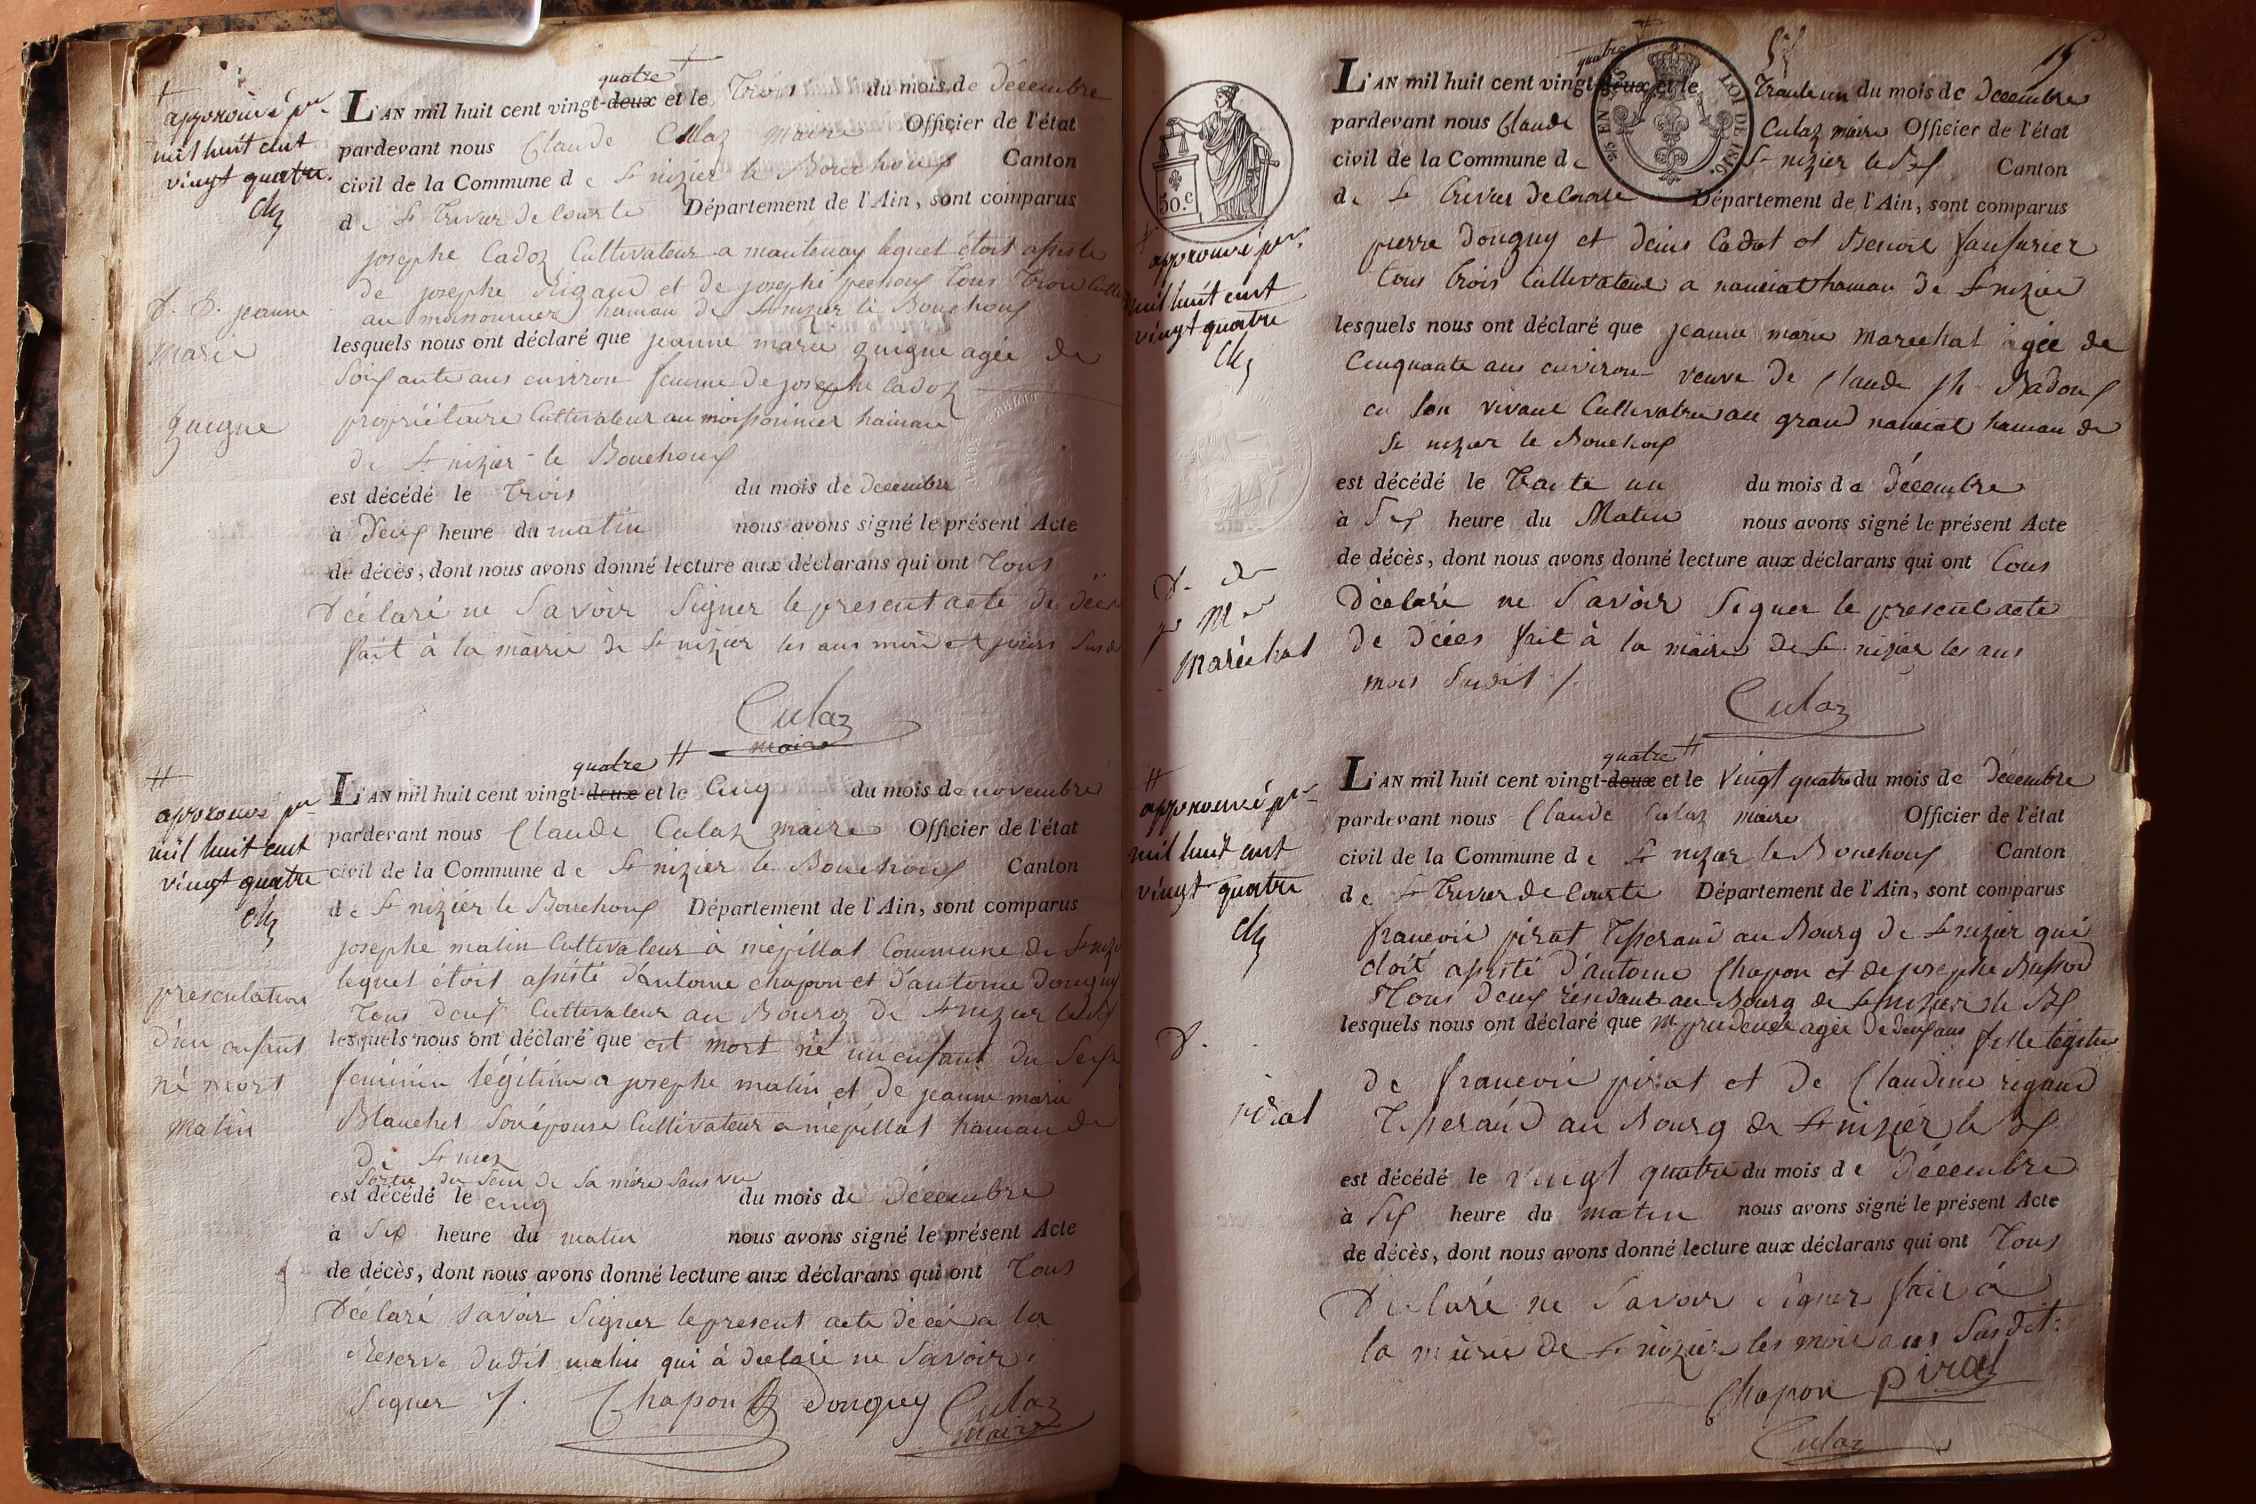 approuvé pr
mil huit cent
vingt quatre.
quatre
L'AN mil huit cent vingt-deux et le Trois du mois de décembre
pardevant nous Claude Culaz maire Officier de l'état
civil de la Commune de St nizier le Bouchoux Canton
de St Trivier de Courte Département de l'Ain, sont comparus
josephe Cadoz Cultivateur a mantenay lequel étoit assisté
de josephe Rigaud et de josephe pechoux Tous Trois
au moissonnier hamau de St nizier le Bouchoux
D. D. jeanne
marie
guigue
lesquels nous ont déclaré que jeanne marie guigue agée de
Soixante ans environ femme de josephe Cadoz
propriétaire Cultivateur au moissonnier hamau
de St nizier le Bouchoux
est décédé le trois du mois de décembre
à Deux heure du matin nous avons signé le présent Acte
de décès, dont nous avons donné lecture aux déclarans qui ont Tous
Déclaré ne Savoir Signer le present acte de
fait à la mairie de St nizier les ans mois et jours
Culaz
maire
approuvé pr
mil huit cent
vingt quatre
quatre
L'AN mil huit cent vingt-deux et le Cinq du mois de novembre
pardevant nous Claude Culaz maire Officier de l'état
civil de la Commune de St nizier le Bouchoux Canton
de St nizier le Bouchoux Département de l'Ain, sont comparus
josephe matin Cultivateur à mépillat Commune de St
lequel étoit assisté d'Antoine chapon et d'antoine Donguy
Tous deux Cultivateur au Bourg de St nizier le
presentation
d'un enfant
né mort
matin
lesquels nous ont déclaré que est mort né un enfant du Sexe
feminin légitime a josephe matin et de jeanne marie
Blanchet Son épouse Cultivateur a mépillat hamau de
De St
Sortie du Sein de Sa mère Sans vie
est décédé le cinq du mois de décembre
à Six heure du matin nous avons signé le présent Acte
de décès, dont nous avons donné lecture aux déclarans qui ont Tous
Déclaré Savoir Signer le present acte a la
Reserve dudit matin qui à declaré ne Savoir
Signer Chapon Donguy Culaz
maire
15
30.c
LOI DE 1816.
approuvé pr.
mil huit cent
vingt quatre
quatre
L'AN mil huit cent vingt-deux et le Trante un du mois de décembre
pardevant nous Claude Culaz maire Officier de l'état
civil de la Commune de St nizier le Canton
de St Trivier de Courte Département de l'Ain, sont comparus
pierre Donguy et Denis Cadot et Benoit
tous trois Cultivateur a hamau de St nizier
lesquels nous ont déclaré que jeanne marie Marechal agée de
Cinquante ans environ veuve de Claude
en Son vivant Cultivateur au grand hamau de
St nizier le Bouchoux
est décédé le Trante un du mois de décembre
à Six heure du Matin nous avons signé le présent Acte
de décès, dont nous avons donné lecture aux déclarans qui ont tous
D. de
je Me
Maréchal
Déclaré ne Savoir Signer le present acte
de décès fait à la mairie de St nizier les ans
mois Susdit
Culaz
approuvé pr
mil huit cent
vingt quatre
quatre
L'AN mil huit cent vingt-deux et le Vingt quatre du mois de Décembre
pardevant nous Claude Culaz maire Officier de l'état
civil de la Commune de St nizier le Bouchoux Canton
de St Trivier de Courte Département de l'Ain, sont comparus
francois pirat Tisserand au Bourg de St nizier qui
étoit assisté d'antoine Chapon et de josephe
Tous deux résidant au Bourg de St nizier le
D.
pirat
lesquels nous ont déclaré que agée De deux ans fille légitime
de francois pirat et de Claudine rigaud
Tisserand au Bourg de St nizier le
est décédé le vingt quatre du mois de décembre
à Six heure du matin nous avons signé le présent Acte
de décès, dont nous avons donné lecture aux déclarans qui ont Tous
Declaré ne Savoir Signer fait à
la mairie de St nizier les mois ans Susdit
Chapon pirat
Culaz